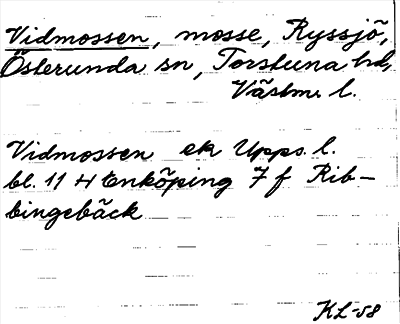 Vidmossen, mosse, Ryssjö,
Österunda sn, Torstuna hd,
Västm. l.
Vidmossen ek Upps. l.
bl. 11 H Enköping 7 f Rib-
bingebäck
KL-58